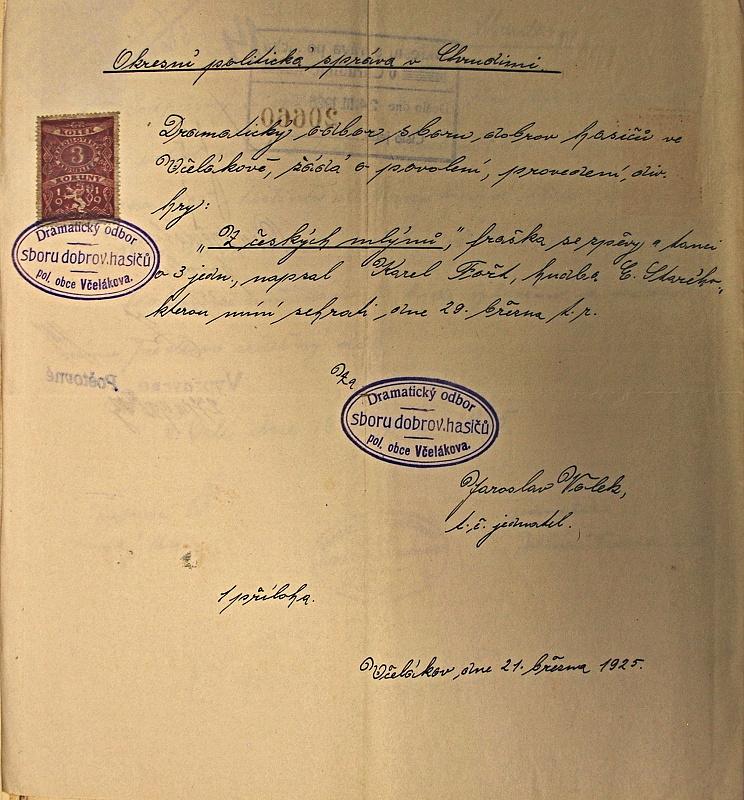 Okresní politická správa v Chrudimi.
Dramatický odbor sboru dobrov. hasičů ve
Včelákově, žádá o povolení, provedení, div.
hry:
„Z českých mlýnů", fraška se zpěvy a tanci
o 3 jedn., napsal Karel Fořt, hudba E. Starého
kterou míní sehráti dne 29. března t. r.
KOLEK
3
KORUNY
1919
Dramatický odbor
sboru dobrov. hasičů
pol. obce Včelákova.
Za
Dramatický odbor
sboru dobrov. hasičů
pol. obce Včelákova.
Jaroslav Volek,
t. č. jednatel.
1 příloha.
Včelákov, dne 21. března 1925.
20660
Poštovné